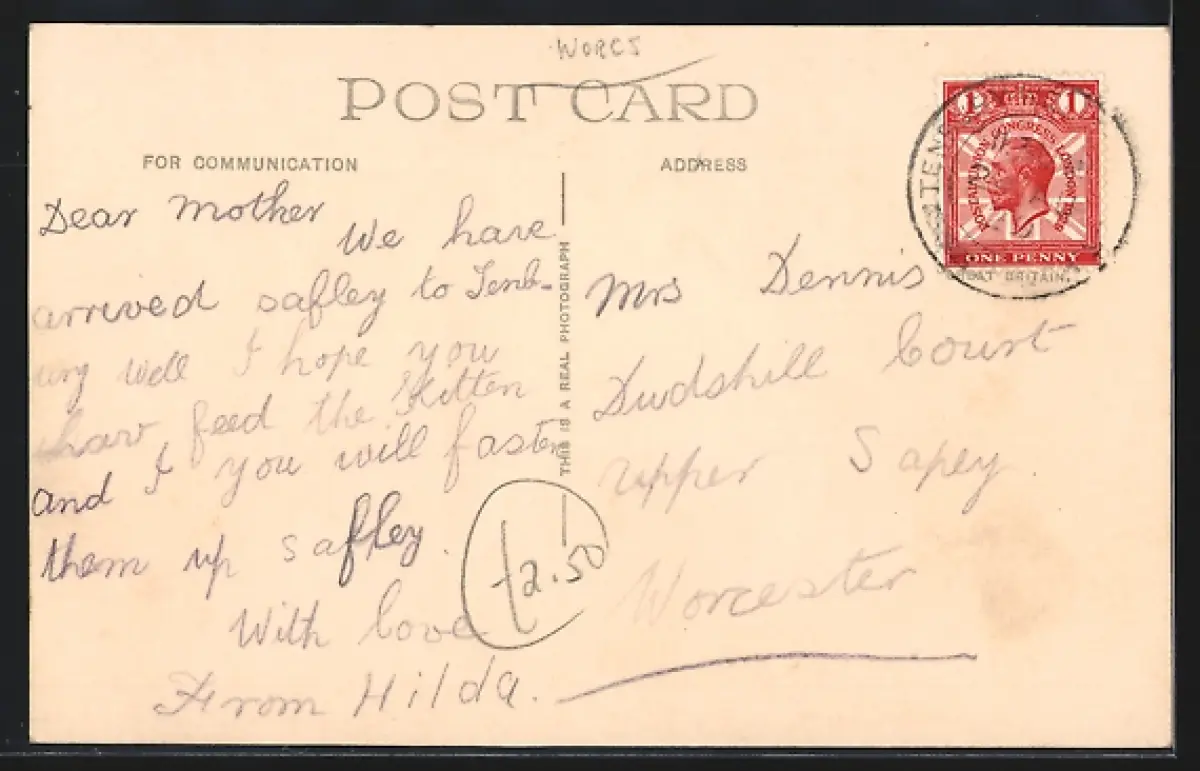 WORCS
POST CARD
FOR COMMUNICATION
ADDRESS
Dear Mother
We have
arrived safley to Tenb-
ury well I hope you
have feed the Kitten
and I you will fasten
them up safley.
With love
From Hilda.
THIS IS A REAL PHOTOGRAPH
£2.50
Mrs Dennis
Dudshill Court
upper Sapey.
Worcester
1 1
POSTAL UNION CONGRESS LONDON 1929
ONE PENNY
TEN
GREAT BRITAIN.